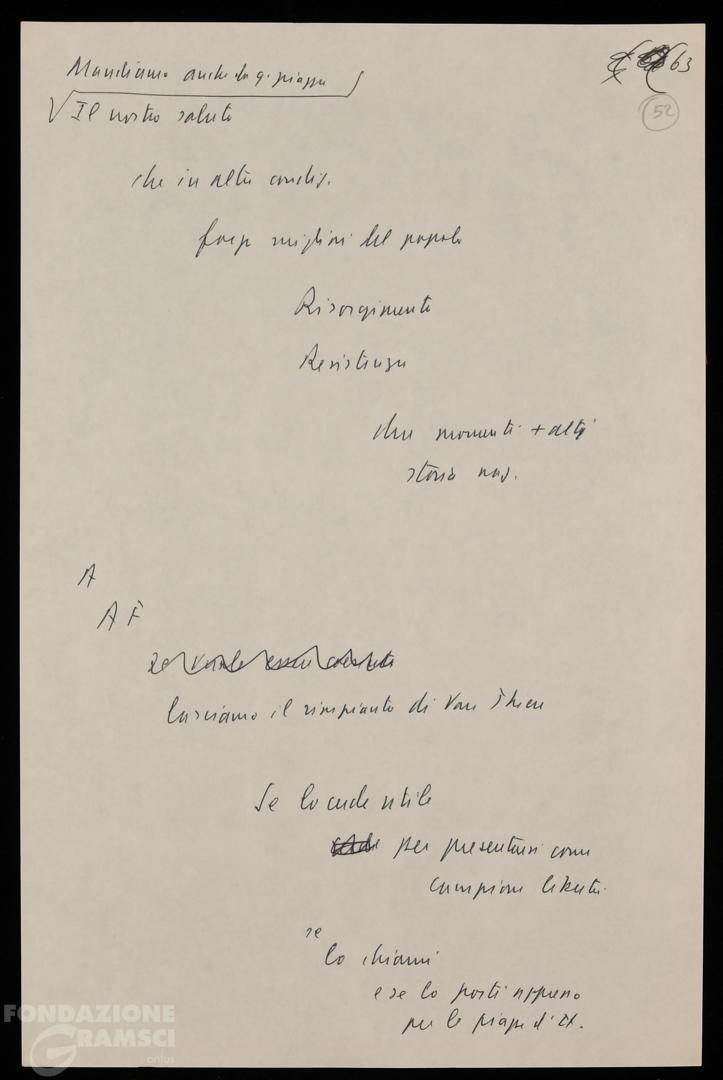 63
52
Mandiamo anche da q. piazza
Il nostro saluto
che in altre condiz.
forze migliori del popolo
Risorgimento
Resistenza
due momenti + alti
storia naz.
A
A F
lasciamo il rimpianto di Van Thieu
Se lo crede utile
per presentarsi come
campione libertà
se
lo chiami
e se lo porti appresso
per le piazze d'It.
FONDAZIONE
GRAMSCI
onlus